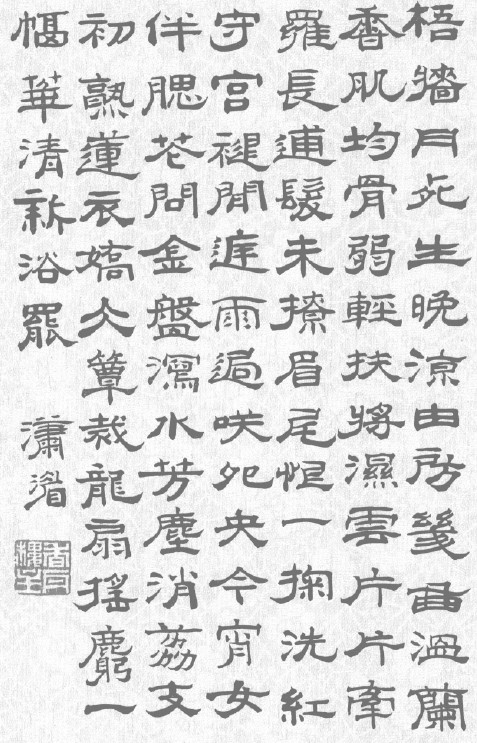 梧牆月死生晚涼由房幾曲溫蘭
香肌均骨弱輕扶將濕雲片片牽
羅長逋髮未撩眉尾恨一掬洗紅
守宮褪閒庭雨過咲夗央今宵女
伴腮花問金盤瀉水芳塵消荔支
初熟蓮衣嬌仌簟裁龍扇搖麝一
幅華清新浴罷 瀟湄